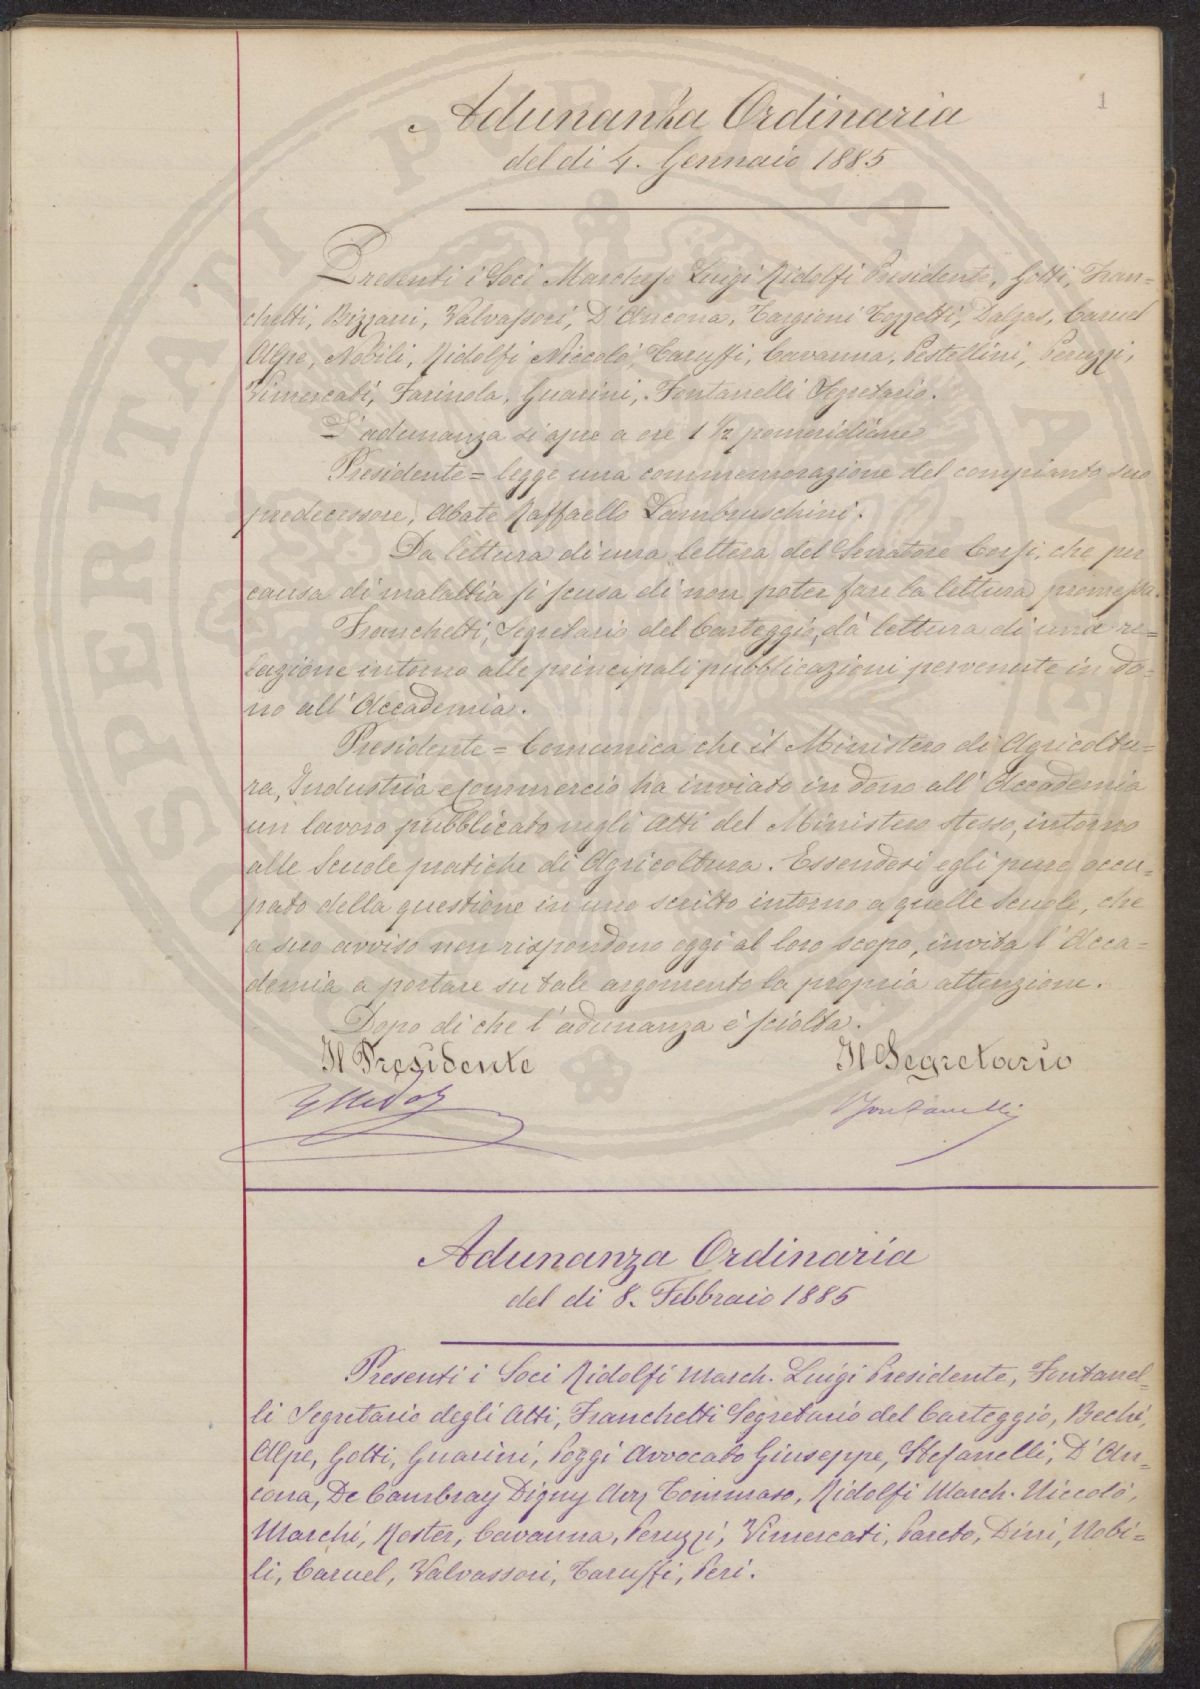 1
Adunanza Ordinaria
del di 4. Gennaio 1885
Presenti i Soci Marchese Luigi Ridolfi Presidente, Gotti, Fran=
chetti, Bizzarri, Valvassori, D'Ancona, Targioni Tozzetti, Dalgas, Caruel
Alpe, Nobili, Ridolfi Niccolò, Taruffi, Cavanna, Pestellini, Peruzzi,
Vimercati, Farinola, Guarini, Fontanelli Segretario.
L'adunanza si apre a ore 1 ½ pomeridiane
Presidente = legge una commemorazione del compianto suo
predecessore, Abate Raffaello Lambruschini.
Da lettura di una lettera del Senatore Corsi, che per
causa di malattia si scusa di non poter fare la lettura promessa.
Franchetti, Segretario del Carteggio, dà lettura di una re=
lazione intorno alle principali pubblicazioni pervenute in do=
no all'Accademia.
Presidente = Comunica che il Ministero di Agricoltu=
ra, Industria e Commercio ha inviato in dono all'Accademia
un lavoro pubblicato negli Atti del Ministero stesso, intorno
alle Scuole pratiche di Agricoltura. Essendosi egli pure occu=
pato della questione in uno scritto intorno a quelle Scuole, che
a suo avviso non rispondono oggi al loro scopo, invita l'Acca=
demia a portare su tale argomento la propria attenzione.
Dopo di che l'adunanza è sciolta.
Il Presidente Il Segretario
LRidolfi Fontanelli
Adunanza Ordinaria
del di 8. Febbraio 1885
Presenti i Soci Ridolfi March. Luigi Presidente, Fontanel=
li Segretario degli Atti, Franchetti Segretario del Carteggio, Bechi,
Alpe, Gotti, Guarini, Poggi Avvocato Giuseppe, Stefanelli, D'An=
cona, De Cambray Digny Tommaso, Ridolfi March. Niccolò,
Marchi, Roster, Cavanna, Peruzzi, Vimercati, Pareto, Dini, Nobi=
li, Caruel, Valvassori, Taruffi, Peri.